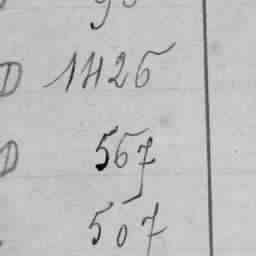 D 1426
D 567
507